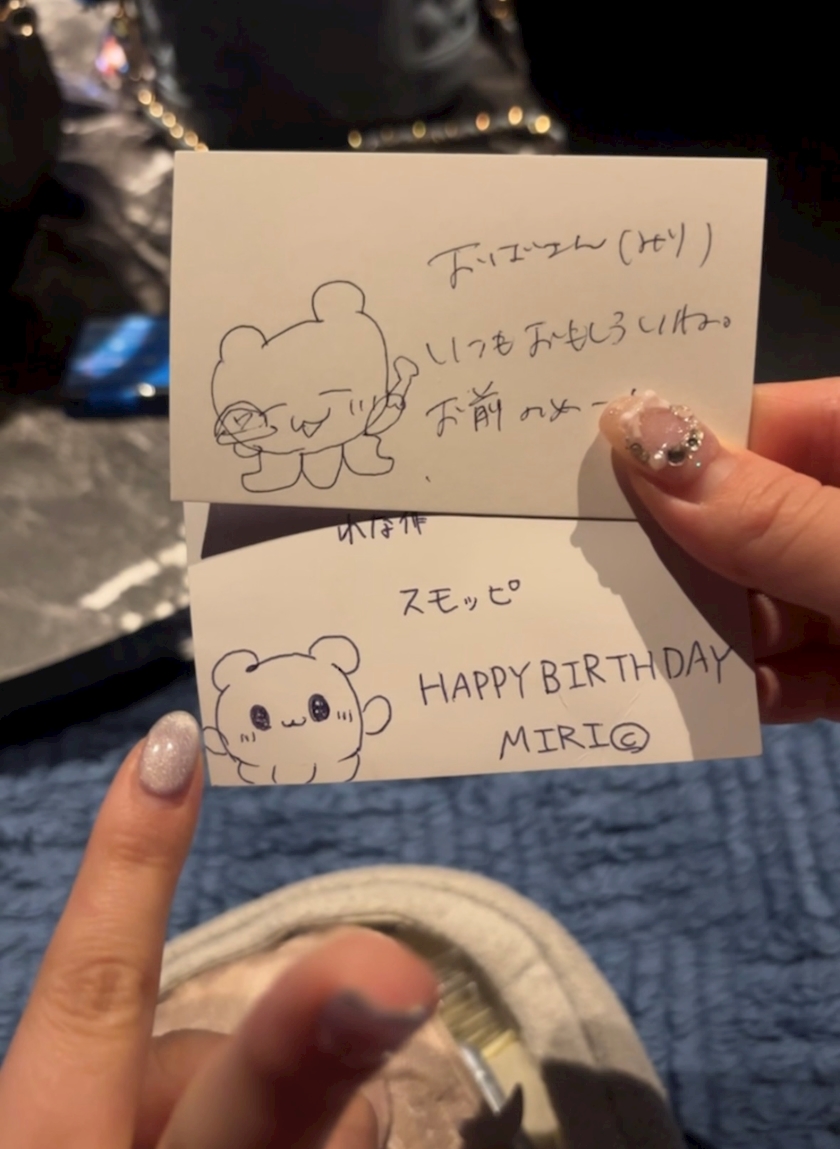 おばさん(みり)
いつもおもしろいね。
お前のめ
れな作
スモッピ
HAPPY BIRTHDAY
MIRI©